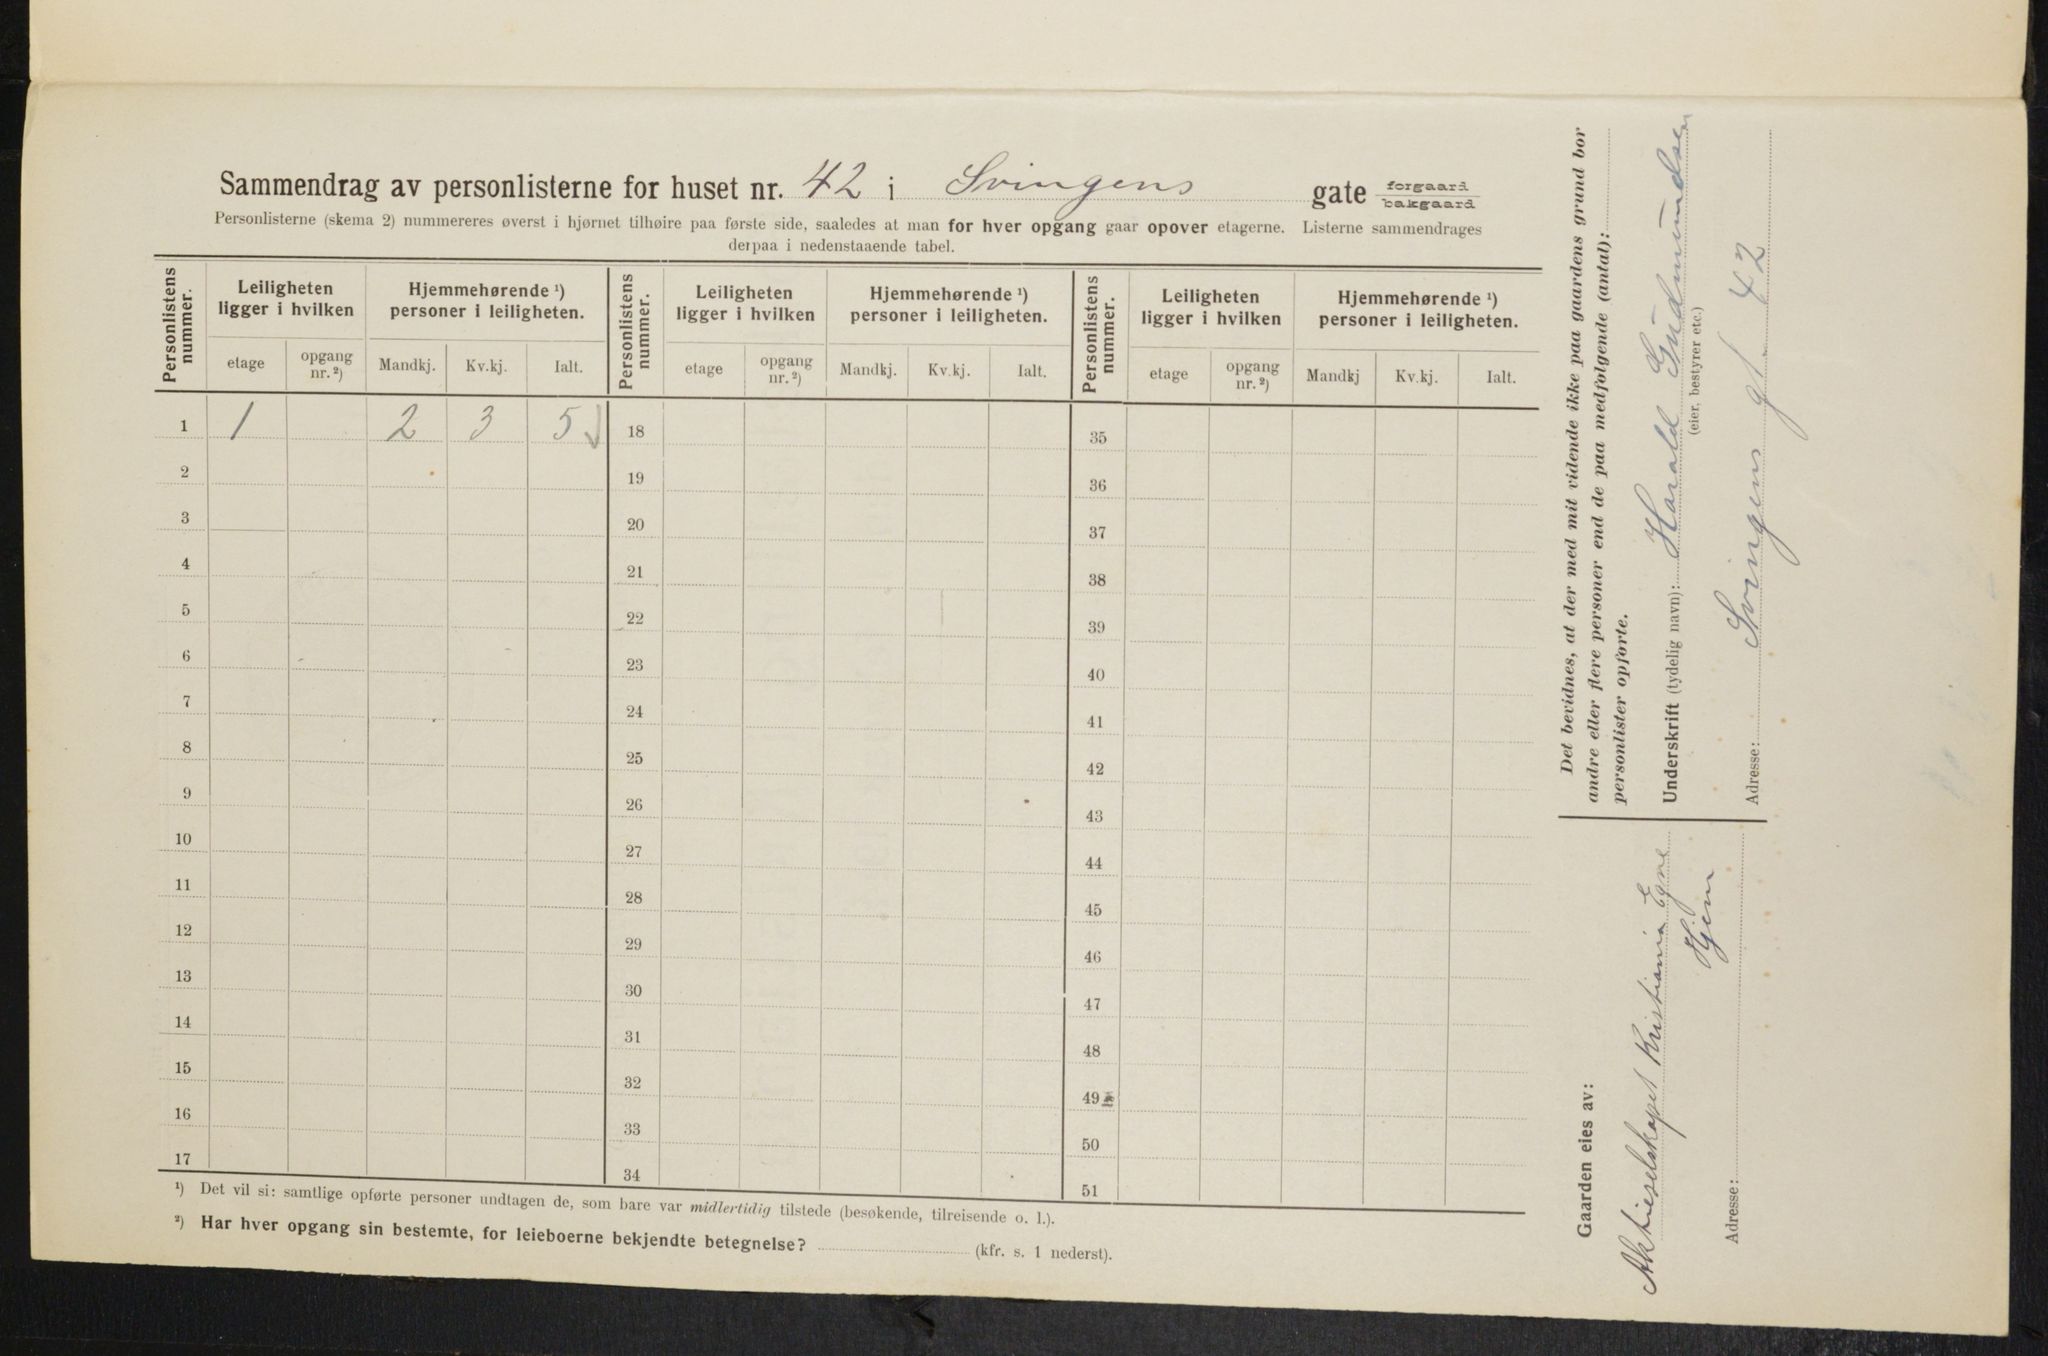 Sammendrag av personlisterne for huset nr. 42 i Svingens gate forgaard bakgaard
Personlisterne (skema 2) nummereres øverst i hjørnet tilhøire paa første side, saaledes at man for hver opgang gaar opover etagerne. Listerne sammendrages
derpaa i nedenstaaende tabel.
Personlistens nummer. Leiligheten ligger i hvilken Hjemmehørende ¹) personer i leiligheten. Personlistens nummer. Leiligheten ligger i hvilken Hjemmehørende ¹) personer i leiligheten. Personlistens nummer. Leiligheten ligger i hvilken Hjemmehørende ¹) personer i leiligheten.
etage opgang nr. ²) Mandkj. Kv.kj. Ialt. etage opgang nr. ²) Mandkj. Kv.kj. Ialt. etage opgang nr. ²) Mandkj Kv.kj. Ialt.
1 1 2 3 5 18 35
2 19 36
3 20 37
4 21 38
5 22 39
6 23 40
7 24 41
8 25 42
9 26 43
10 27 44
11 28 45
12 29 46
13 30 47
14 31 48
15 32 49
16 33 50
17 34 51
¹) Det vil si: samtlige opførte personer undtagen de, som bare var midlertidig tilstede (besøkende, tilreisende o. l.).
²) Har hver opgang sin bestemte, for leieboerne bekjendte betegnelse? (kfr. s. 1 nederst).
Det bevidnes, at der med mit vidende ikke paa gaardens grund bor
andre eller flere personer end de paa medfølgende (antal):
personlister opførte.
Underskrift (tydelig navn): Harald Gudmundsen
(eier, bestyrer etc.)
Adresse: Svingens gt. 42
Gaarden eies av:
Aktieselskapet Kristiania Egne
Hjem
Adresse: